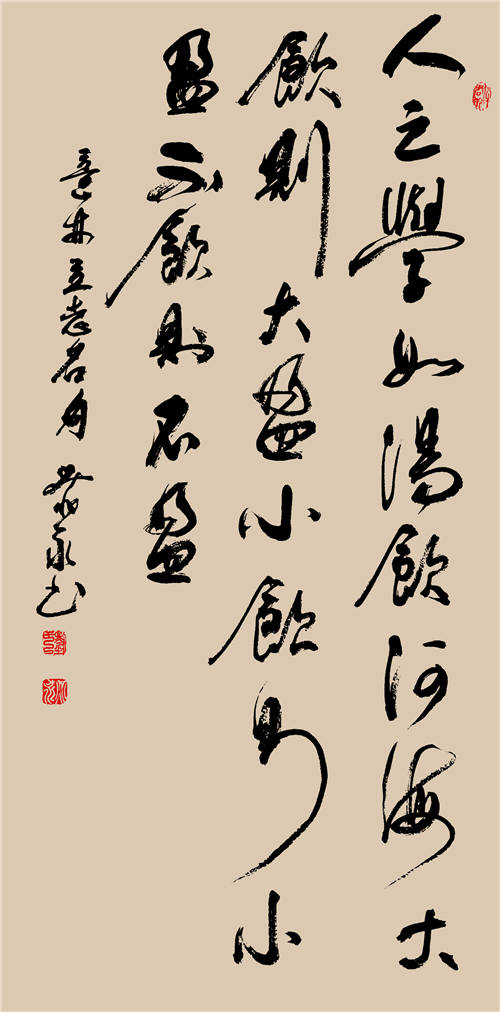 人之學如渴飲河海大
飲則大盈小飲則小
盈不飲則不盈
意林 名句 永书